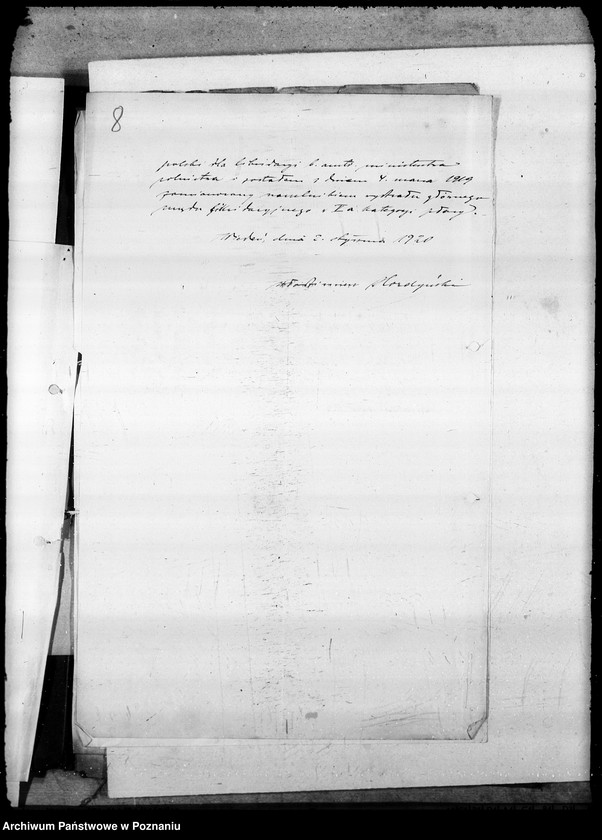 8
polski dla likwidacyi b. austr. ministerstwa
rolnictwa i zostałem z dniem 4. marca 1919
zamianowany naczelnikiem wydziału głównego
urzędu likwidacyjnego z I a kategoryi płacy.
Wiedeń, dnia 2. stycznia 1920
Włodzimierz Hordyński
Archiwum Państwowe w Poznaniu